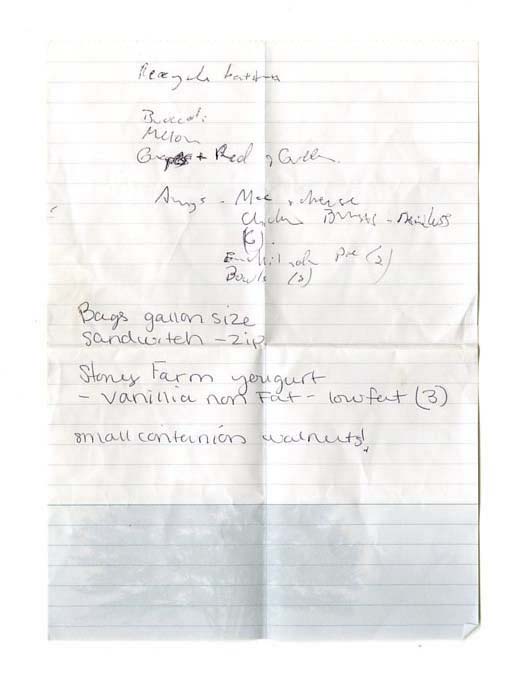 Recycle
Broccoli
Melon
Grapes + Red , Green
Amys - Mac + cheese
Chicken Breasts - skinless
(6).
Enchilada Pie (2)
Bowls (2)
Bags gallon size
Sandwitch - zip
Stony Farm yougurt
- vanillia non Fat - lowfat (3)
small containors walnuts!